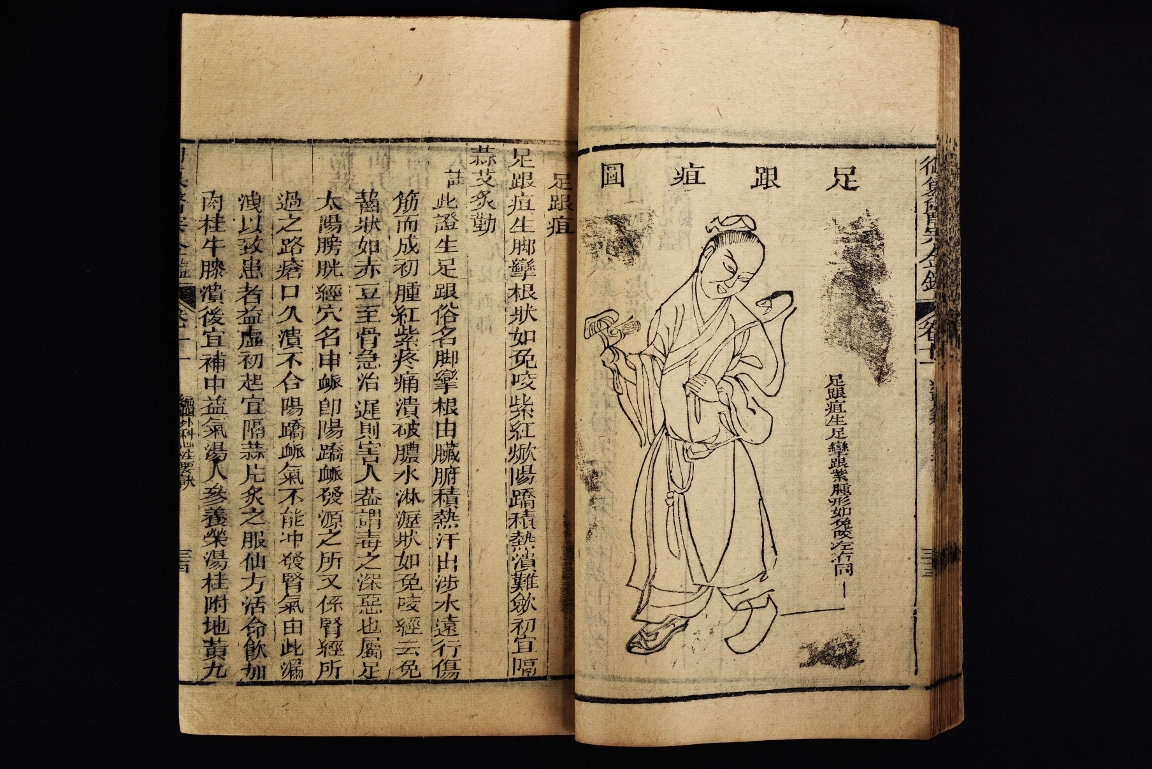 足跟疽圖
足跟疽生足攣跟紫腫形如兔咬左右同
足跟疽
足跟疽生脚攣根狀如兔咬紫紅焮陽蹻積熱潰難斂初宜隔
蒜艾炙勤
註此證生足跟俗名脚攣根由臟腑積熱汗出涉水遠行傷
筋而成初腫紅紫疼痛潰破膿水淋瀝狀如兔咬經云兔
齧狀如赤豆至骨急治遲則害人葢謂毒之深惡也屬足
太陽膀胱經穴名申䘑卽陽蹻䘑發源之所又係腎經所
過之路瘡口久潰不合陽蹻䘑氣不能冲發腎氣由此漏
洩以致患者益虛初起宜隔蒜片炙之服仙方活命飲加
肉桂牛膝潰後宜補中益氣湯人參養榮湯桂附地黃九